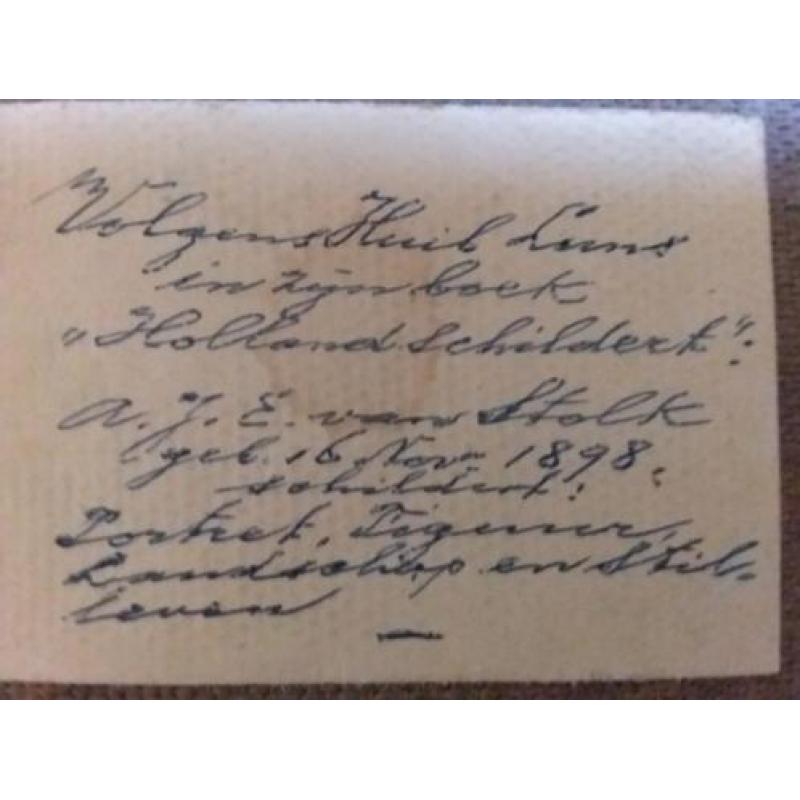 Volgens Huib Luns
in zijn boek
„Holland schildert":
A. J. E. van Stolk
geb. 16 Nov 1898.
schildert:
Portret, Figuur,
Landschap en Stil-
leven